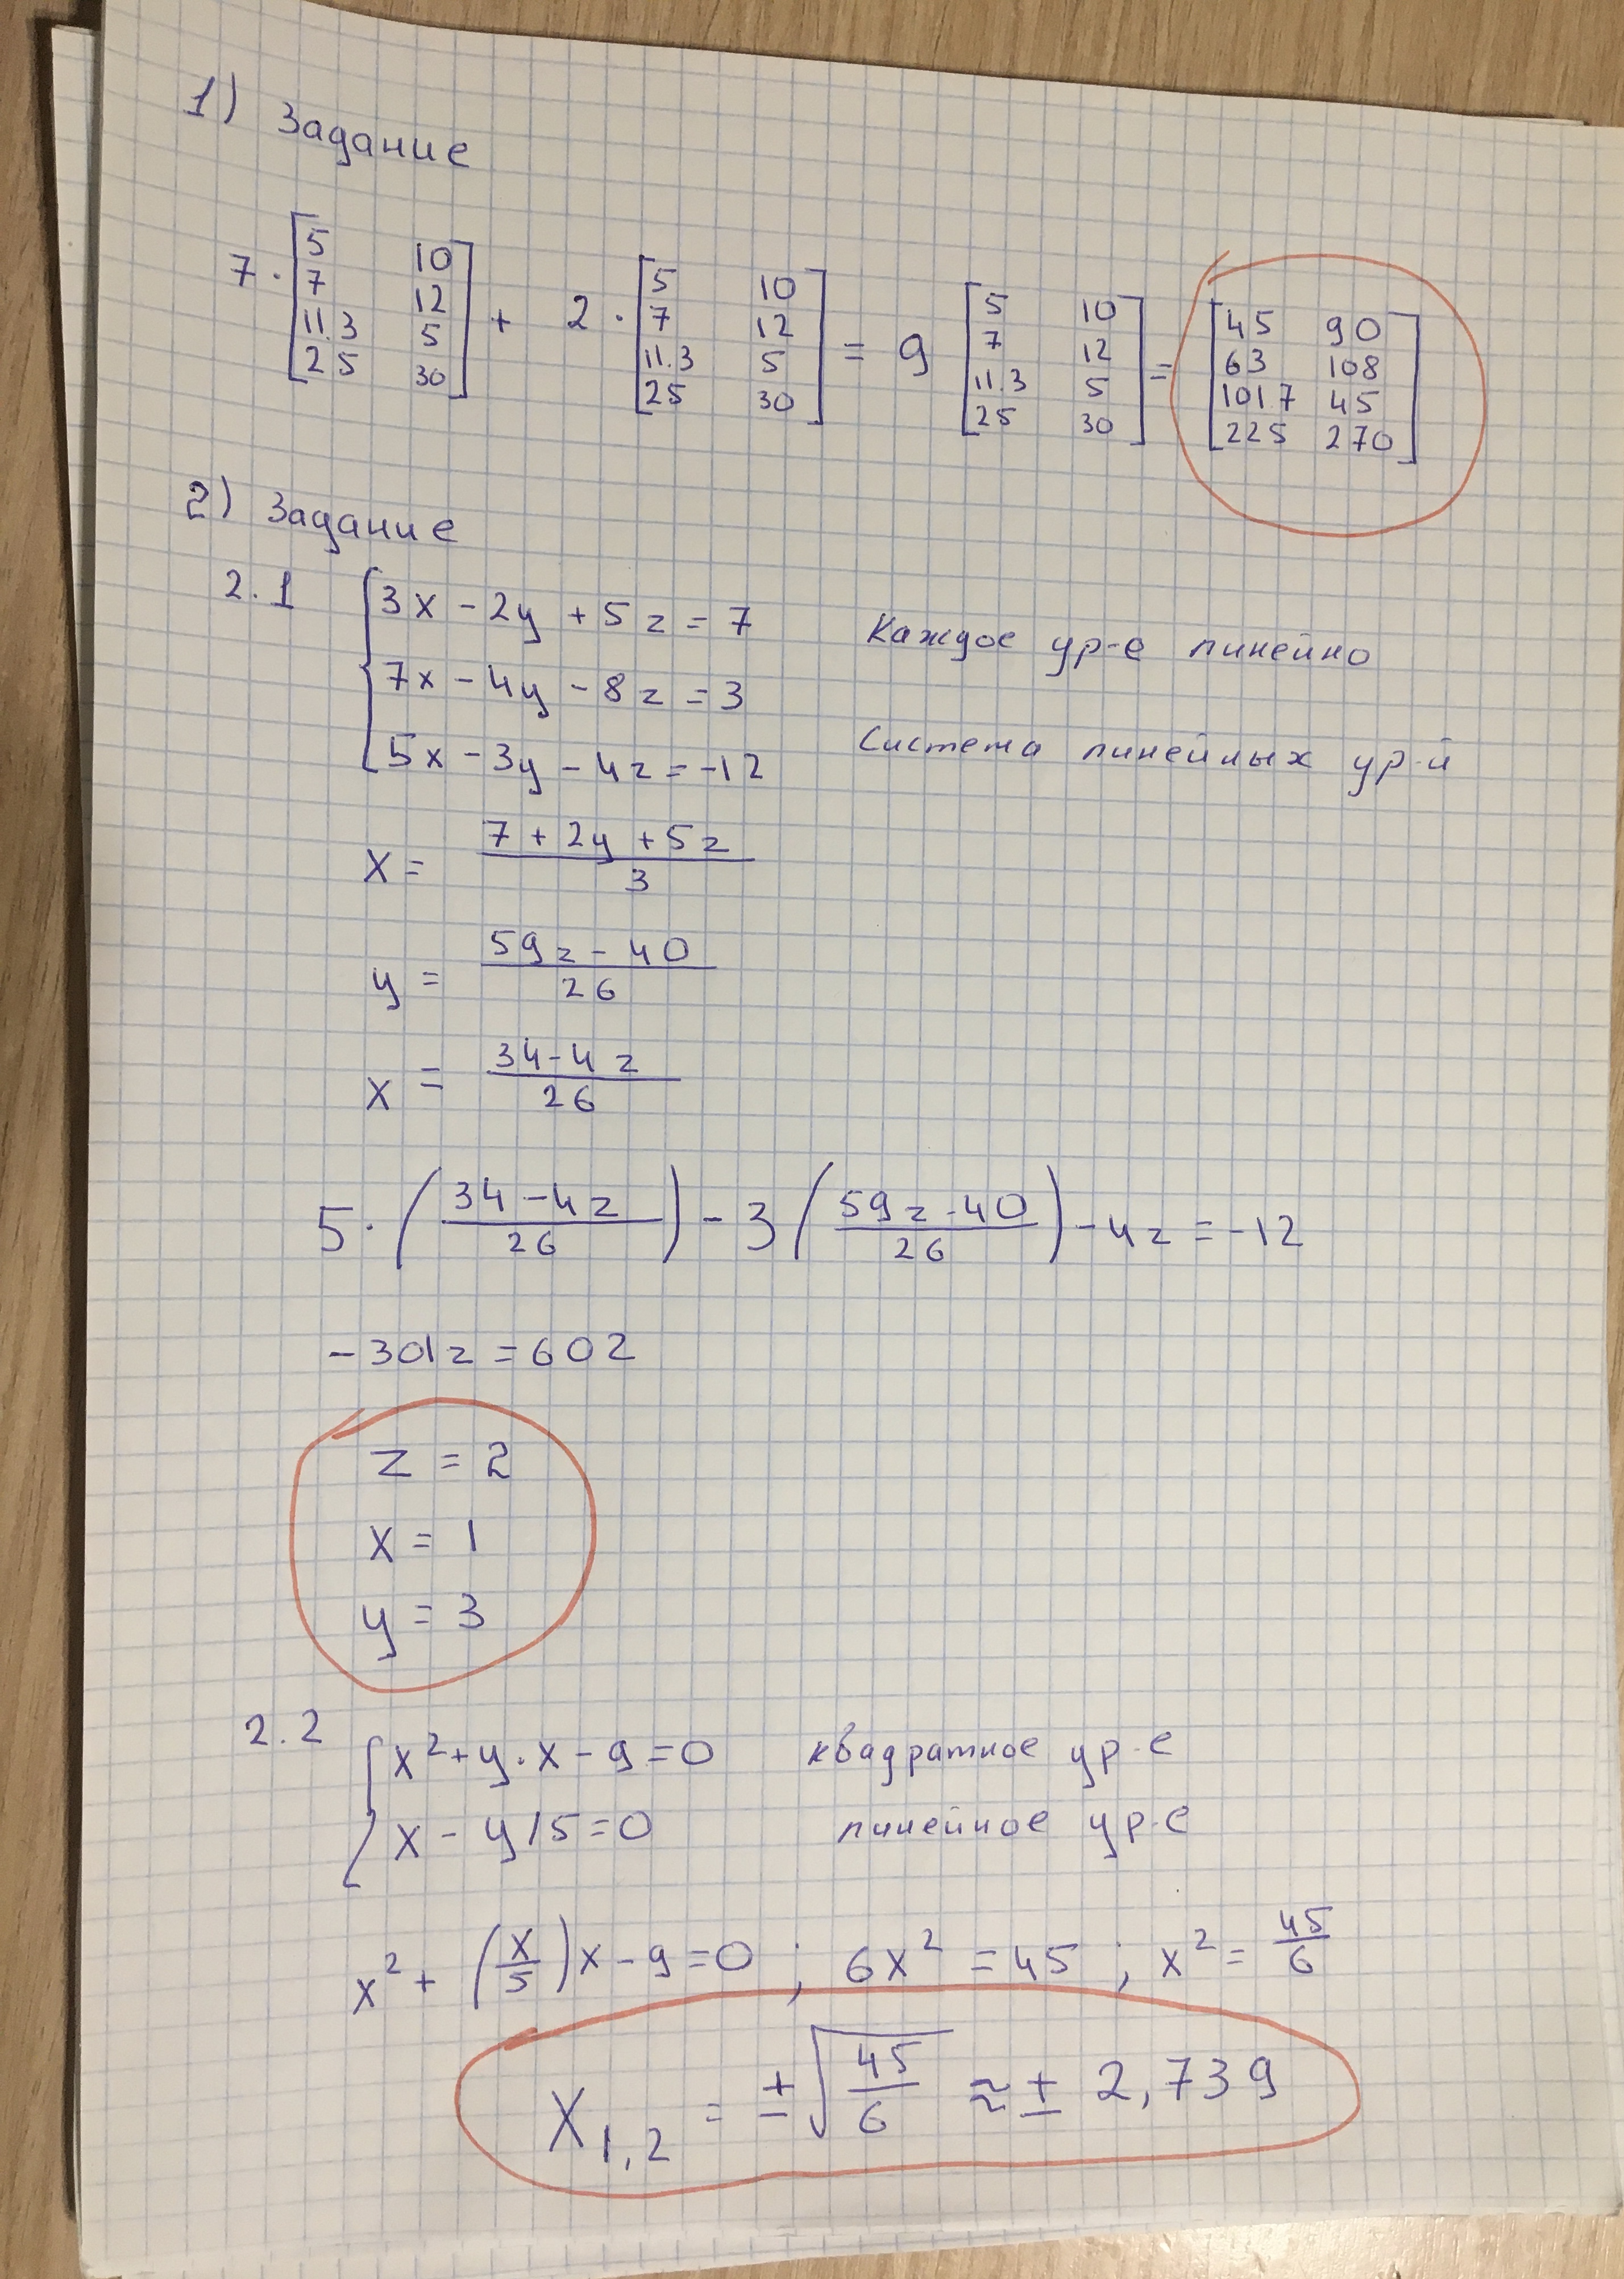 1) Задание
7 · [5 10; 7 12; 11.3 5; 25 30] + 2 · [5 10; 7 12; 11.3 5; 25 30] = 9 [5 10; 7 12; 11.3 5; 25 30] = [45 90; 63 108; 101.7 45; 225 270]
2) Задание
2.1
3x - 2y + 5z = 7 Каждое ур-е линейно
7x - 4y - 8z = 3
5x - 3y - 4z = -12 Система линейных ур-й
x = (7 + 2y + 5z) / 3
y = (59z - 40) / 26
x = (34 - 4z) / 26
5 · ((34 - 4z) / 26) - 3 ((59z - 40) / 26) - 4z = -12
-301z = 602
z = 2
x = 1
y = 3
2.2
x² + y · x - 9 = 0 квадратное ур-е
x - y/5 = 0 линейное ур-е
x² + (x/5)x - 9 = 0 ; 6x² = 45 ; x² = 45/6
X1,2 = ± √(45/6) ≈ ± 2,739